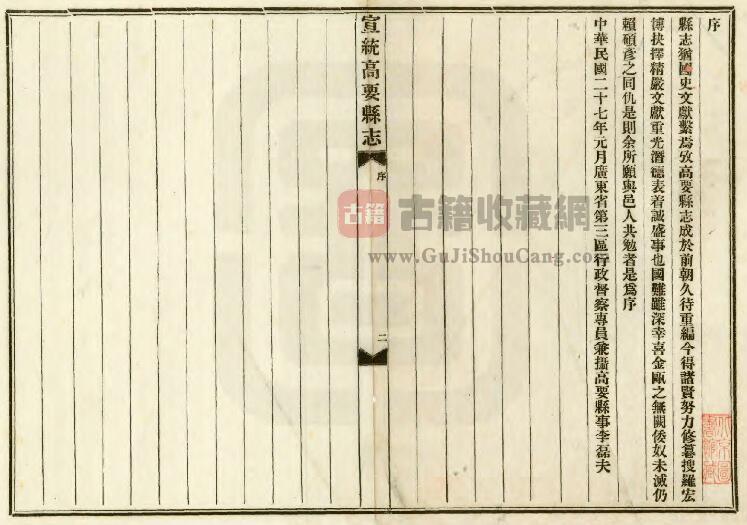 序
縣志猶國史文獻繫焉攷高要縣志成於前朝久待重編今得諸賢努力修纂搜羅宏
博抉擇精嚴文獻重光潛德表着誠盛事也國難雖深幸喜金甌之無闕倭奴未滅仍
賴碩彥之同仇是則余所願與邑人共勉者是爲序
中華民國二十七年元月廣東省第三區行政督察專員兼攝高要縣事李磊夫
宣統高要縣志
序
二
古籍
古籍收藏網
www.GuJiShouCang.com